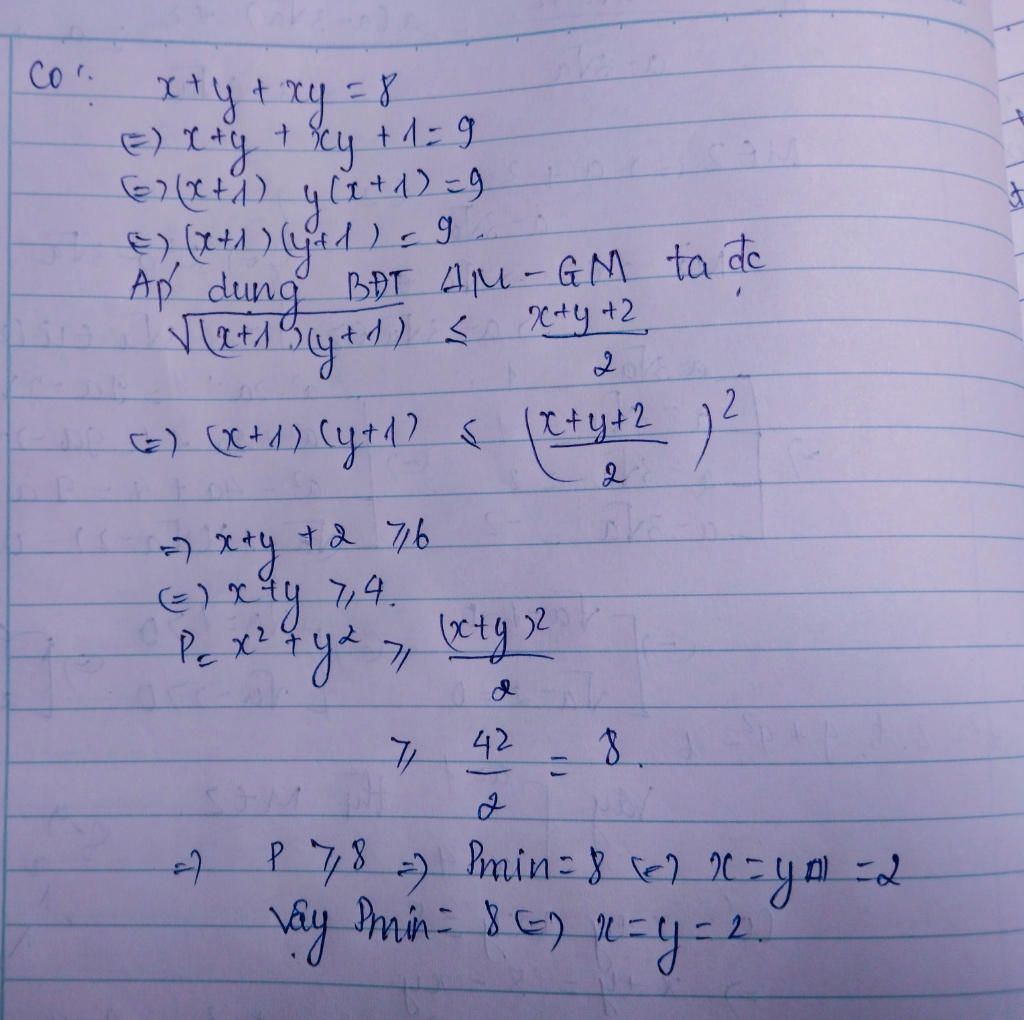 Có: x+y+xy=8
⇔ x+y+xy+1=9
⇔ (x+1) y(x+1)=9
⇔ (x+1)(y+1)=9.
Áp dụng BĐT AM-GM ta đc
√(x+1)(y+1) ≤ (x+y+2)/2
⇔ (x+1)(y+1) ≤ ((x+y+2)/2)²
⇒ x+y+2 ≥ 6
⇔ x+y ≥ 4.
P= x²+y² ≥ (x+y)²/2
≥ 4²/2 = 8.
⇒ P ≥ 8 ⇒ Pmin=8 ⇔ x=y=2
Vậy Pmin= 8 ⇔ x=y=2.